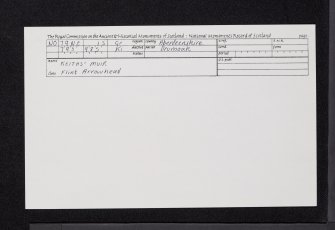 The Royal Commission on the Ancient & Historical Monuments of Scotland - National Monuments Record of Scotland
NO 79 NE 15 Gr Aberdeenshire
793. 982. Ki Drumoak
name
KEITHS' MUIR
Flint Arrowhead